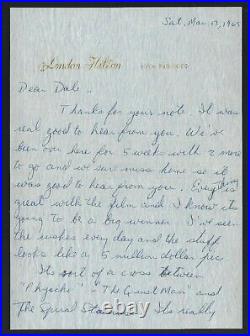 Sat. Mar. 13, 1965
London Hilton
Dear Dale..
Thanks for your note. It was
real good to hear from you. We've
been over here for 5 weeks with 2 more
to go and we sure miss home so it
was good to hear from you. Everything is
great with the film and I know it's
going to be a big winner. I've seen
the rushes every day and the stuff
looks like a 5 million dollar pic
Its sort of a cross between
"Physcho" - "The Quiet Man" and
The Spiral Staircase. Its really